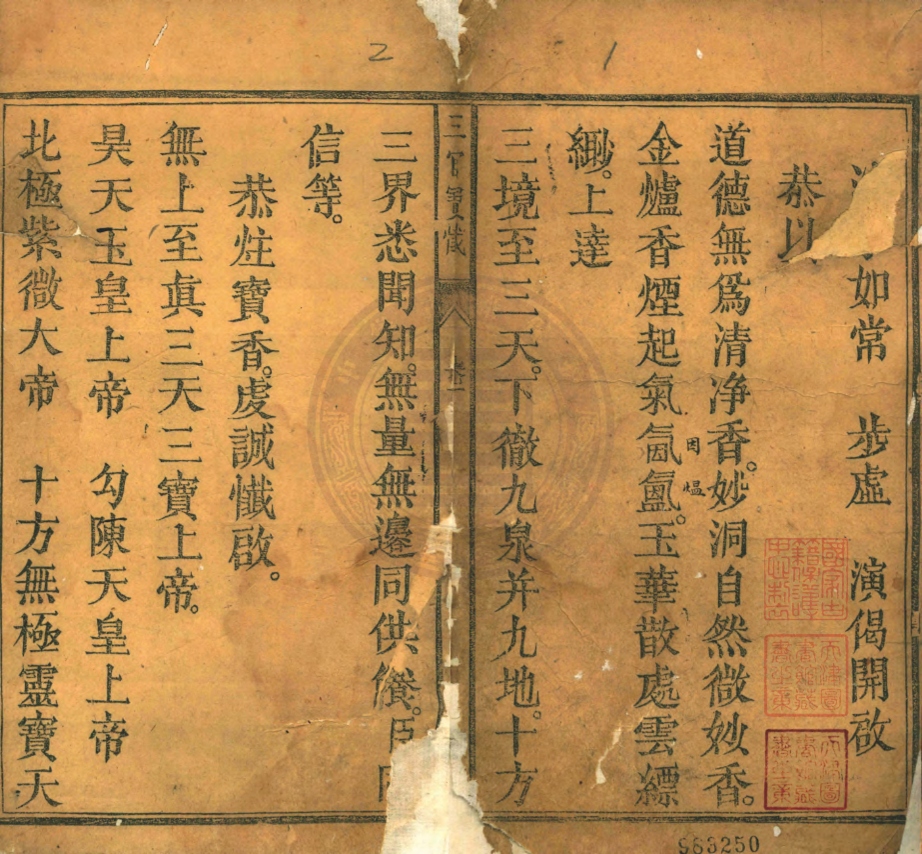 如常　步虛　演偈開啟
恭以
道德無爲清净香。妙洞自然微妙香。
金爐香煙起氣氤氳。玉華散處雲縹
因 熅
緲。上達
三境至三天。下徹九泉并九地。十方
三官寶懺 卷
三界悉聞知。無量無邊同供養。臣
信等。
恭炷寶香。虔誠懺啟。
無上至眞三天三寶上帝。
昊天玉皇上帝　勾陳天皇上帝
北極紫微大帝　十方無極靈寶天
1
2
563250